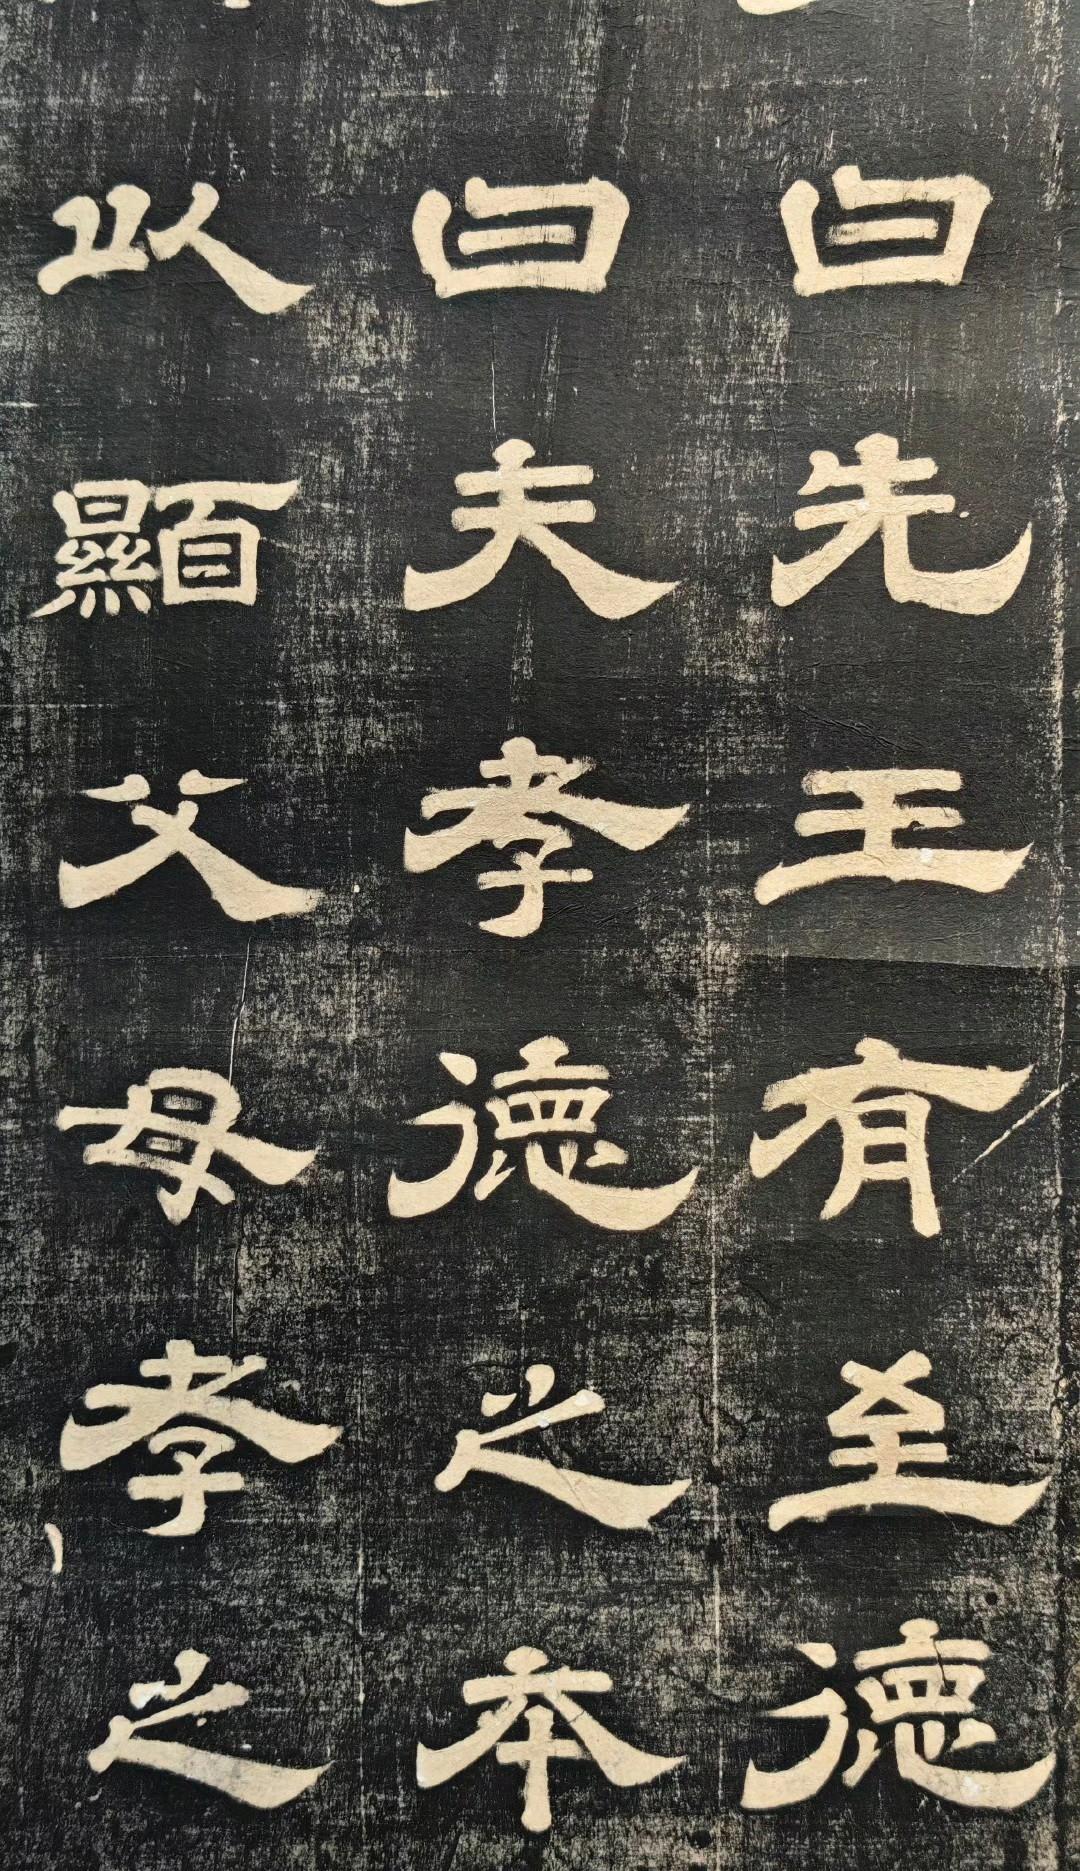 曰先王有至德
曰夫孝德之本
以顯父母孝之